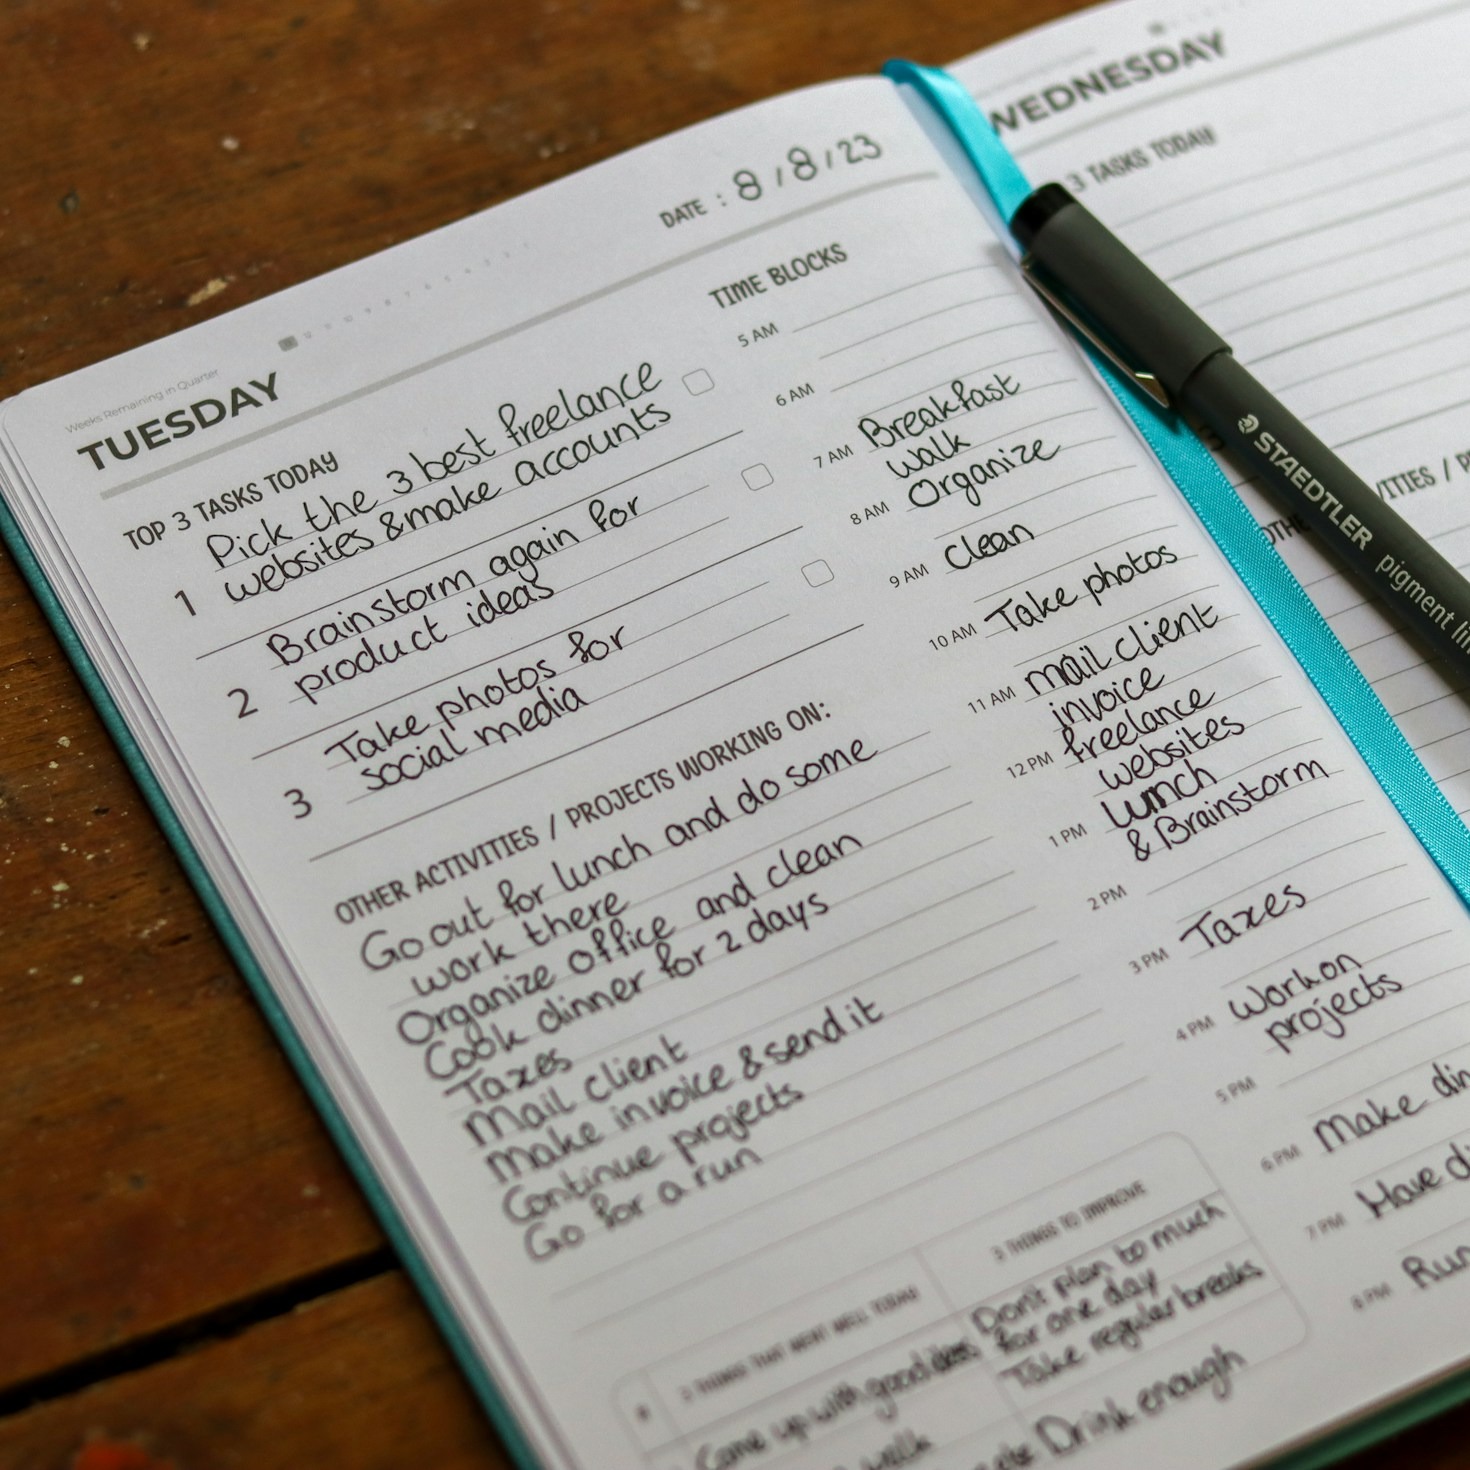 DATE : 8 / 8 / 23
Weeks Remaining in Quarter
TUESDAY
TOP 3 TASKS TODAY
1 Pick the 3 best freelance
websites & make accounts
2 Brainstorm again for
product ideas
3 Take photos for
social media
OTHER ACTIVITIES / PROJECTS WORKING ON:
Go out for lunch and do some
work there
Organize office and clean
Cook dinner for 2 days
Taxes
Mail client
Make invoice & send it
Continue projects
Go for a run
TIME BLOCKS
5 AM
6 AM
7 AM Breakfast
Walk
8 AM Organize
9 AM Clean
10 AM Take photos
11 AM mail client
invoice
12 PM freelance
websites
1 PM Lunch
& Brainstorm
2 PM
3 PM Taxes
4 PM Work on
projects
5 PM
6 PM Make din
7 PM Have di
8 PM Run
3 THINGS THAT WENT WELL TODAY
Come up with good
walk
3 THINGS TO IMPROVE
Don't plan to much
for one day
Take regular breaks
Drink enough
WEDNESDAY
3 TASKS TODAY
OTHE
VITIES / P
STAEDTLER pigment lin